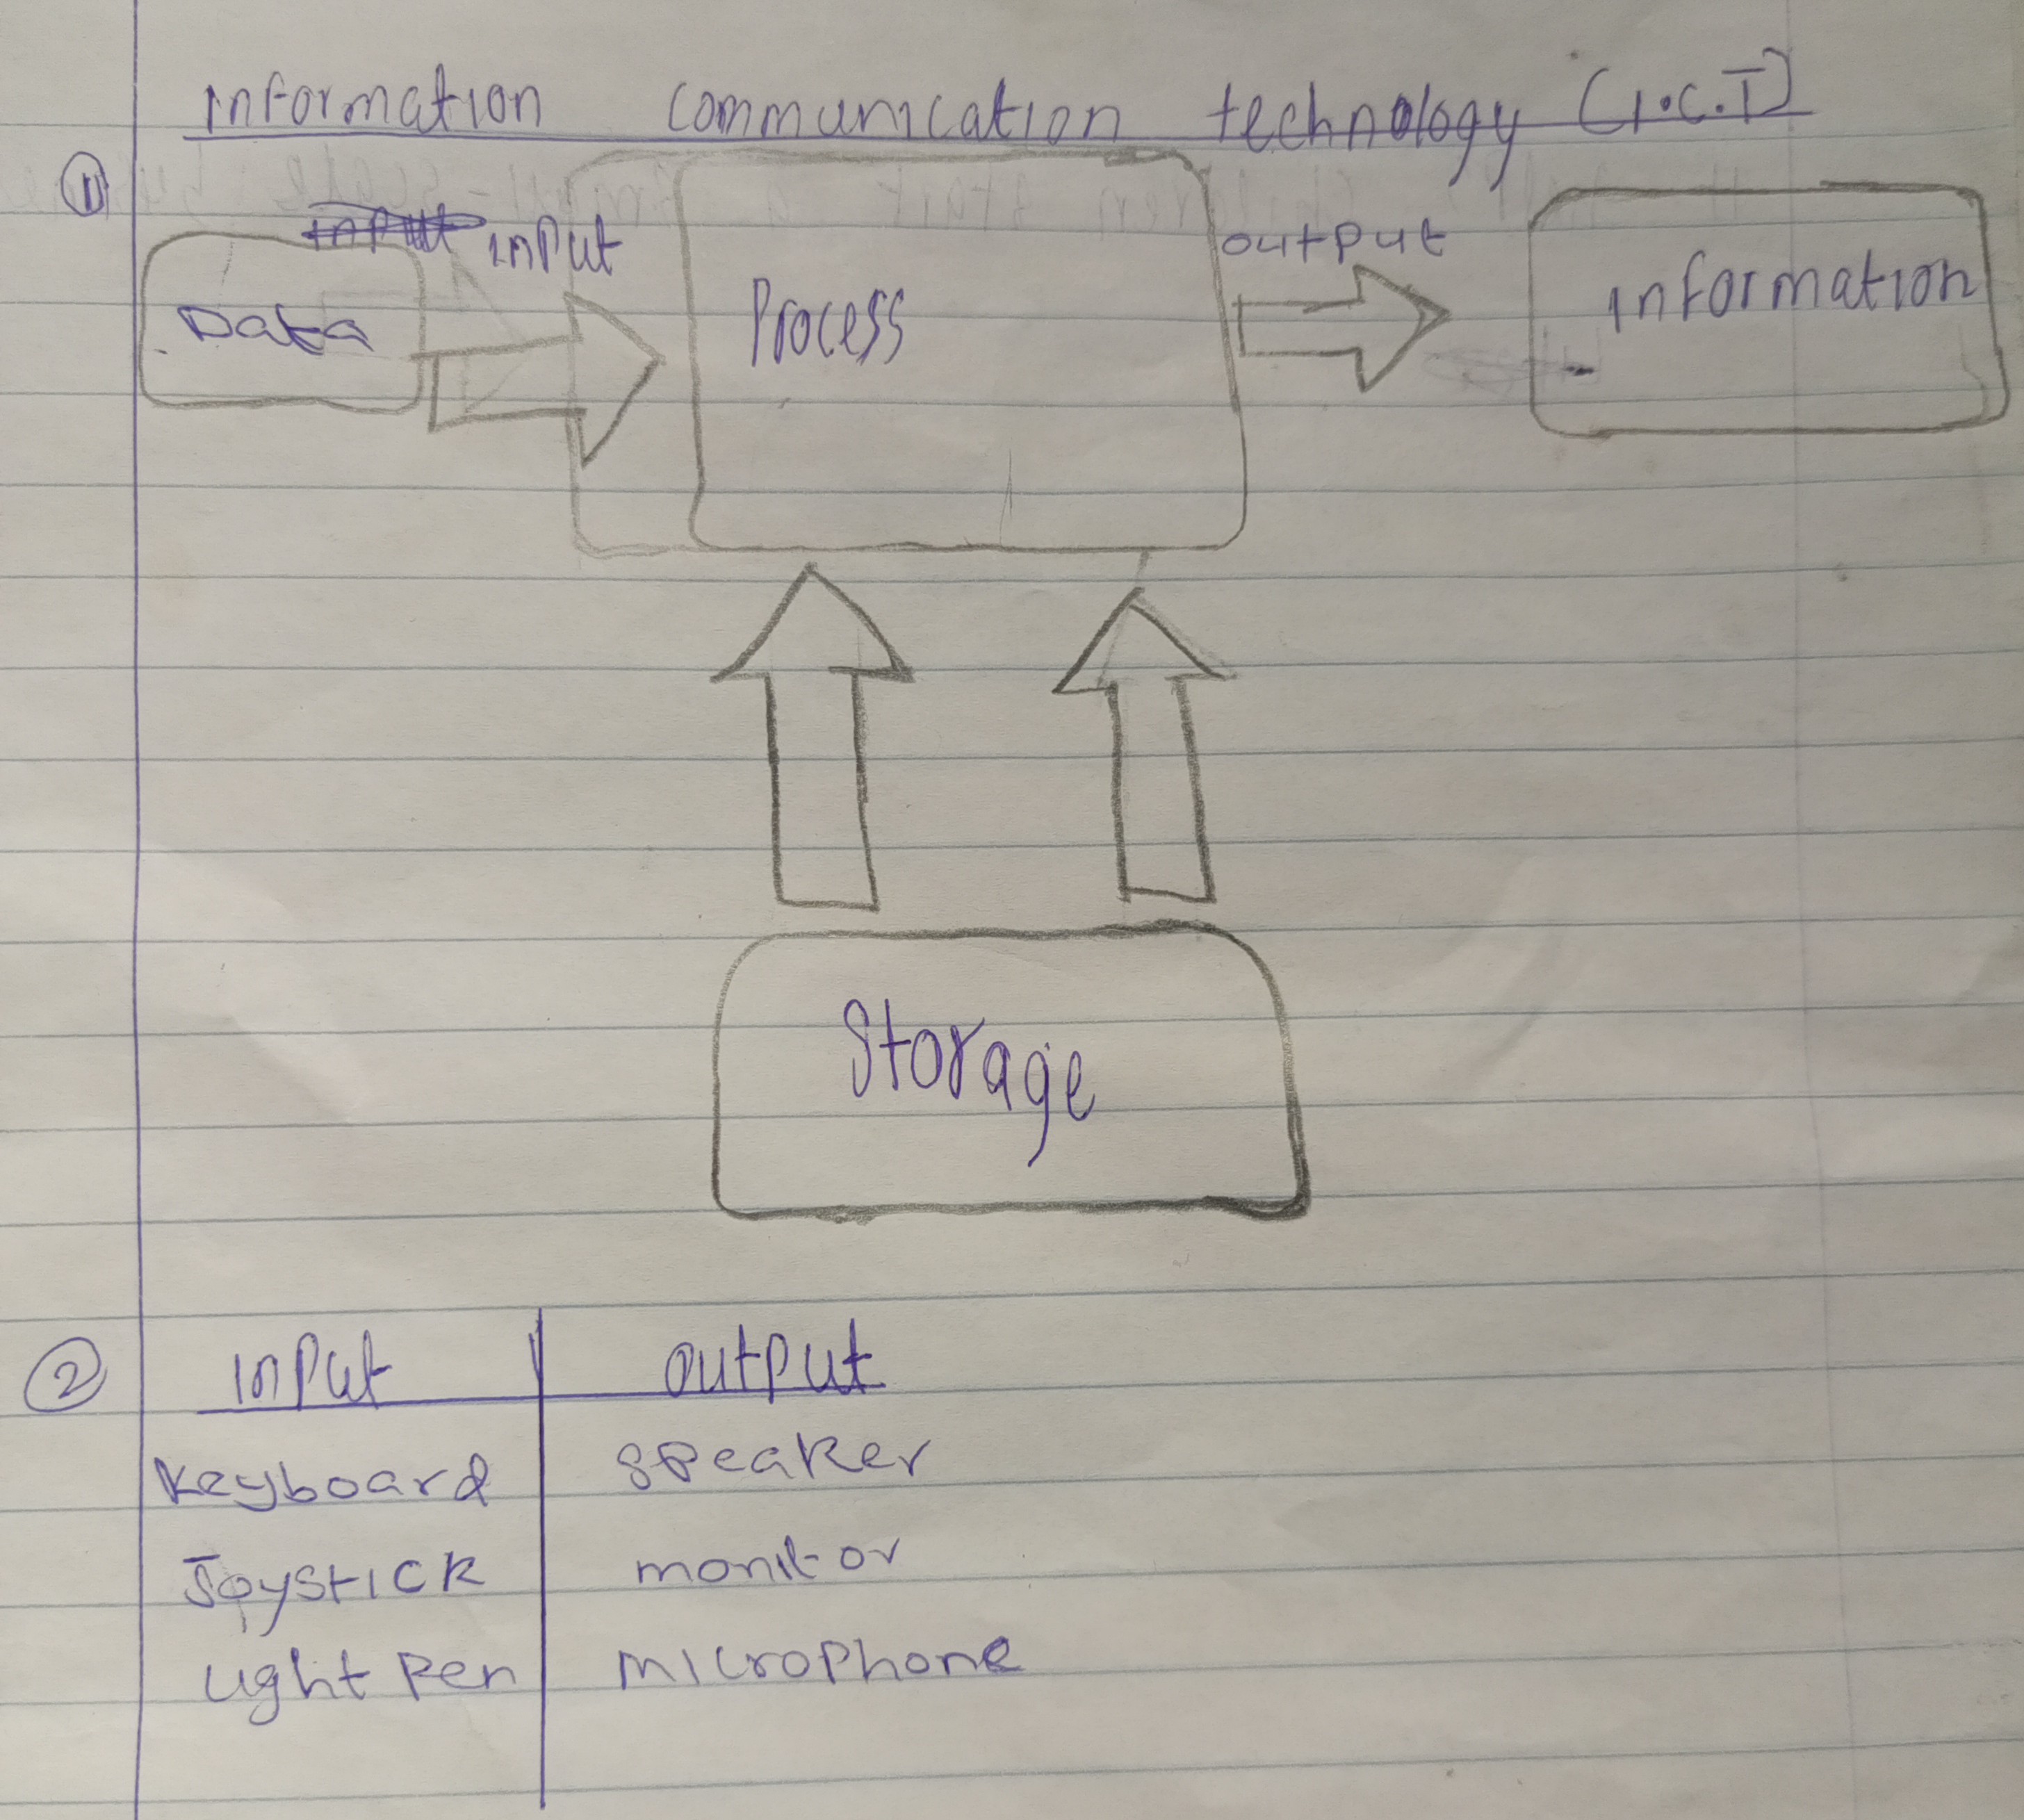 Information communication technology (I.C.T)
①
input input output
Data Process Information
Storage
② Input Output
Keyboard speaker
Joystick monitor
Light Pen microphone